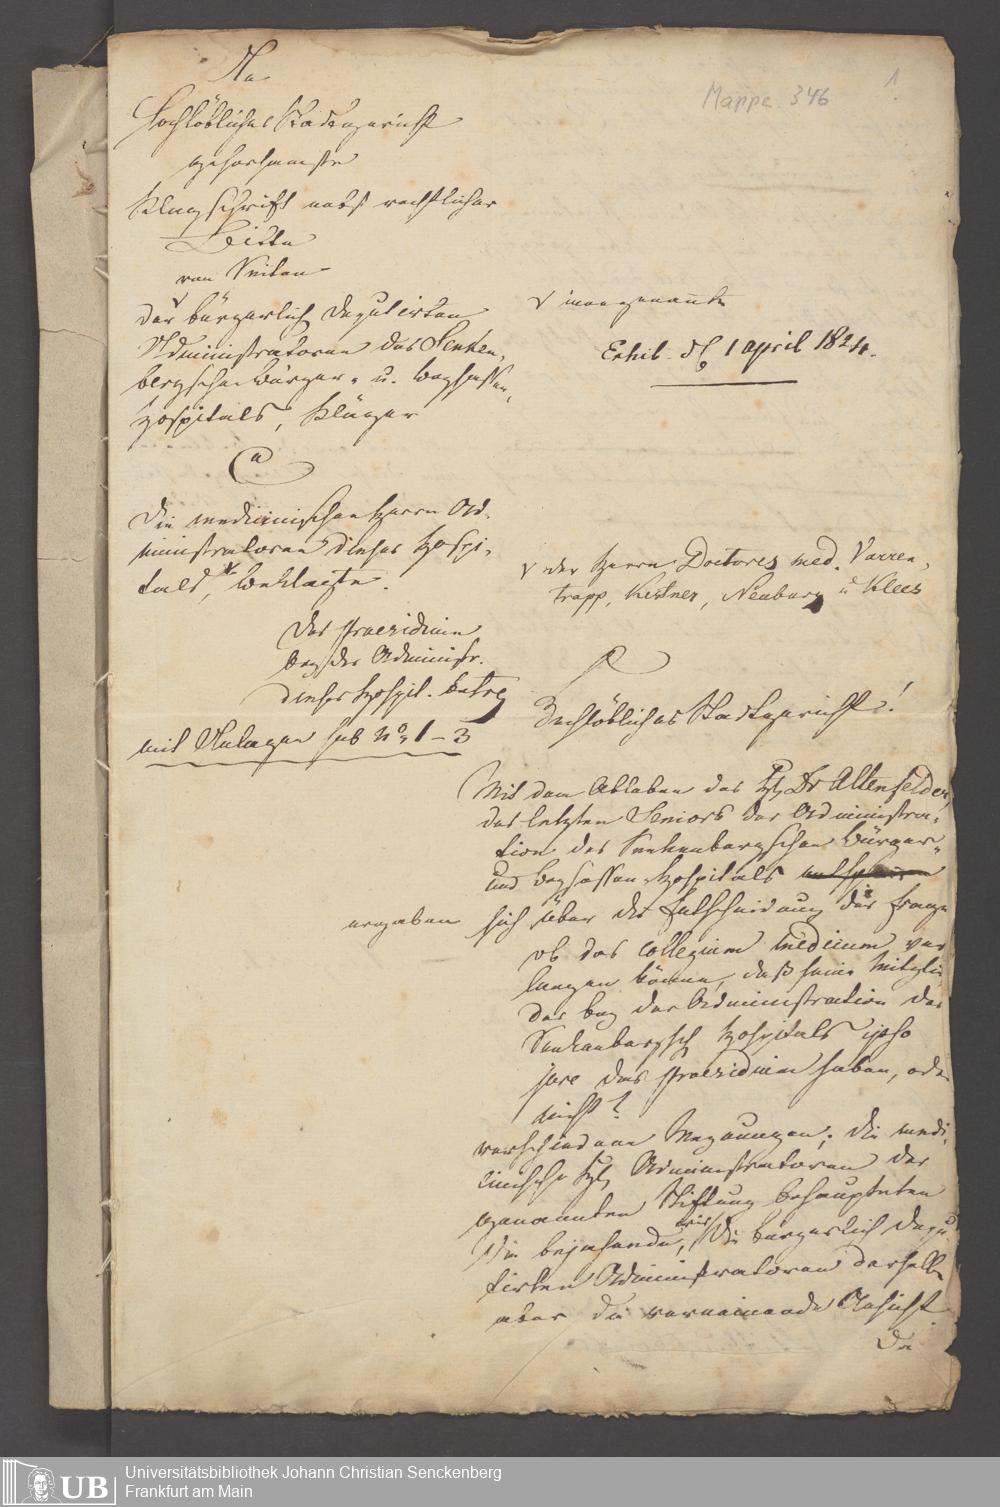 Mappe 346
1
An
Hochlöbliches Stadtgericht
gehorsamste
Klagschrift nebst rechtlicher
Bitte
von Seiten
der bürgerlich deputirten
Administratoren des Senken,
bergschen Bürger- u. Beysassen,
hospitals, Kläger
Ca
die medicinischen Herrn Ad,
ministratoren dieses Hospi,
tals, Beklagte.
das Praesidium
bey der Administr.
dieses Hospit. betrg
mit Anlagen sub No 1-3
innengenannte
Exhib. d. 1 april 1824.
der Herrn Doctores med. Varren,
trapp, Kestner, Neuburg u Klees
Hochlöbliches Stadtgericht!
Mit dem Ableben des H. Dr Altenfelder,
des letzten Seniors der Administra,
tion des Senkenbergschen Bürger-
und Beysassen Hospitals
ergaben sich über die Entscheidung der Frage
ob das Collegium medicum ver
langen könne, daß seine Mitglie,
der bey der Administration des
Senkenbergsch Hospitals ipso
jure das Praesidium haben, oder
nicht?
verschiedene Meynungen; die medi,
cinische H. Administratoren der
genannten Stiftung behaupteten
die bejahende, wir, die bürgerlich depu
tirten Administratoren derselben
aber die verneinende Ansicht.
Da
UB
Universitätsbibliothek Johann Christian Senckenberg
Frankfurt am Main